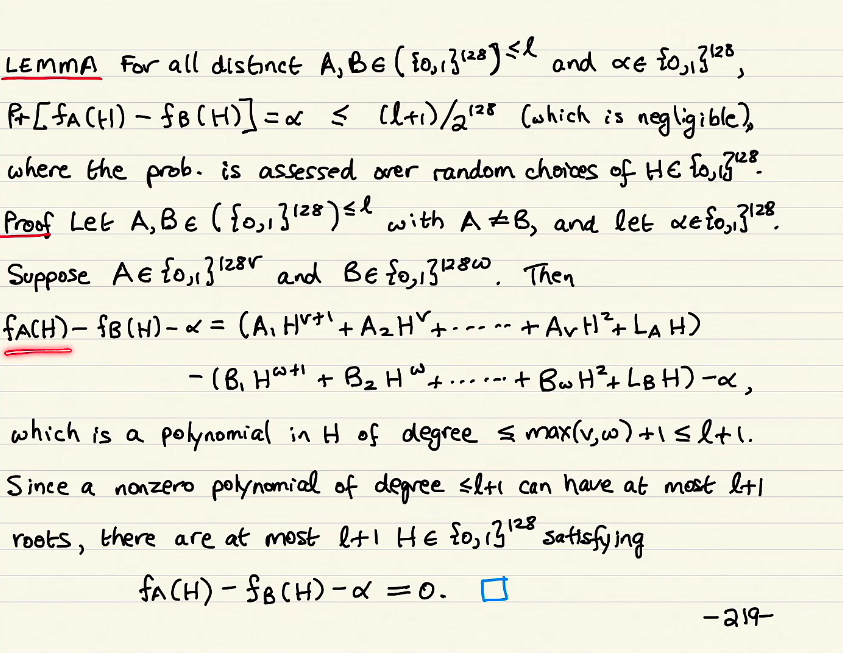 LEMMA For all distinct A, B ∈ ({0,1}^128)^≤l and α ∈ {0,1}^128,
Pr[f_A(H) − f_B(H)] = α ≤ (l+1)/2^128 (which is negligible),
where the prob. is assessed over random choices of H ∈ {0,1}^128.
Proof Let A, B ∈ ({0,1}^128)^≤l with A ≠ B, and let α ∈ {0,1}^128.
Suppose A ∈ {0,1}^128v and B ∈ {0,1}^128w. Then
f_A(H) − f_B(H) − α = (A_1 H^v+1 + A_2 H^v + ······ + A_v H^2 + L_A H)
− (B_1 H^w+1 + B_2 H^w + ······ + B_w H^2 + L_B H) − α,
which is a polynomial in H of degree ≤ max(v,w)+1 ≤ l+1.
Since a nonzero polynomial of degree ≤l+1 can have at most l+1
roots, there are at most l+1 H ∈ {0,1}^128 satisfying
f_A(H) − f_B(H) − α = 0. □
−219−